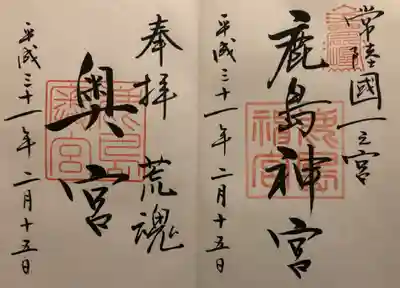 常陸國一之宮
鹿島神宮
鹿島神宮
平成三十一年二月十五日
奉拝 荒魂
奥宮
鹿島奥宮
平成三十一年二月十五日